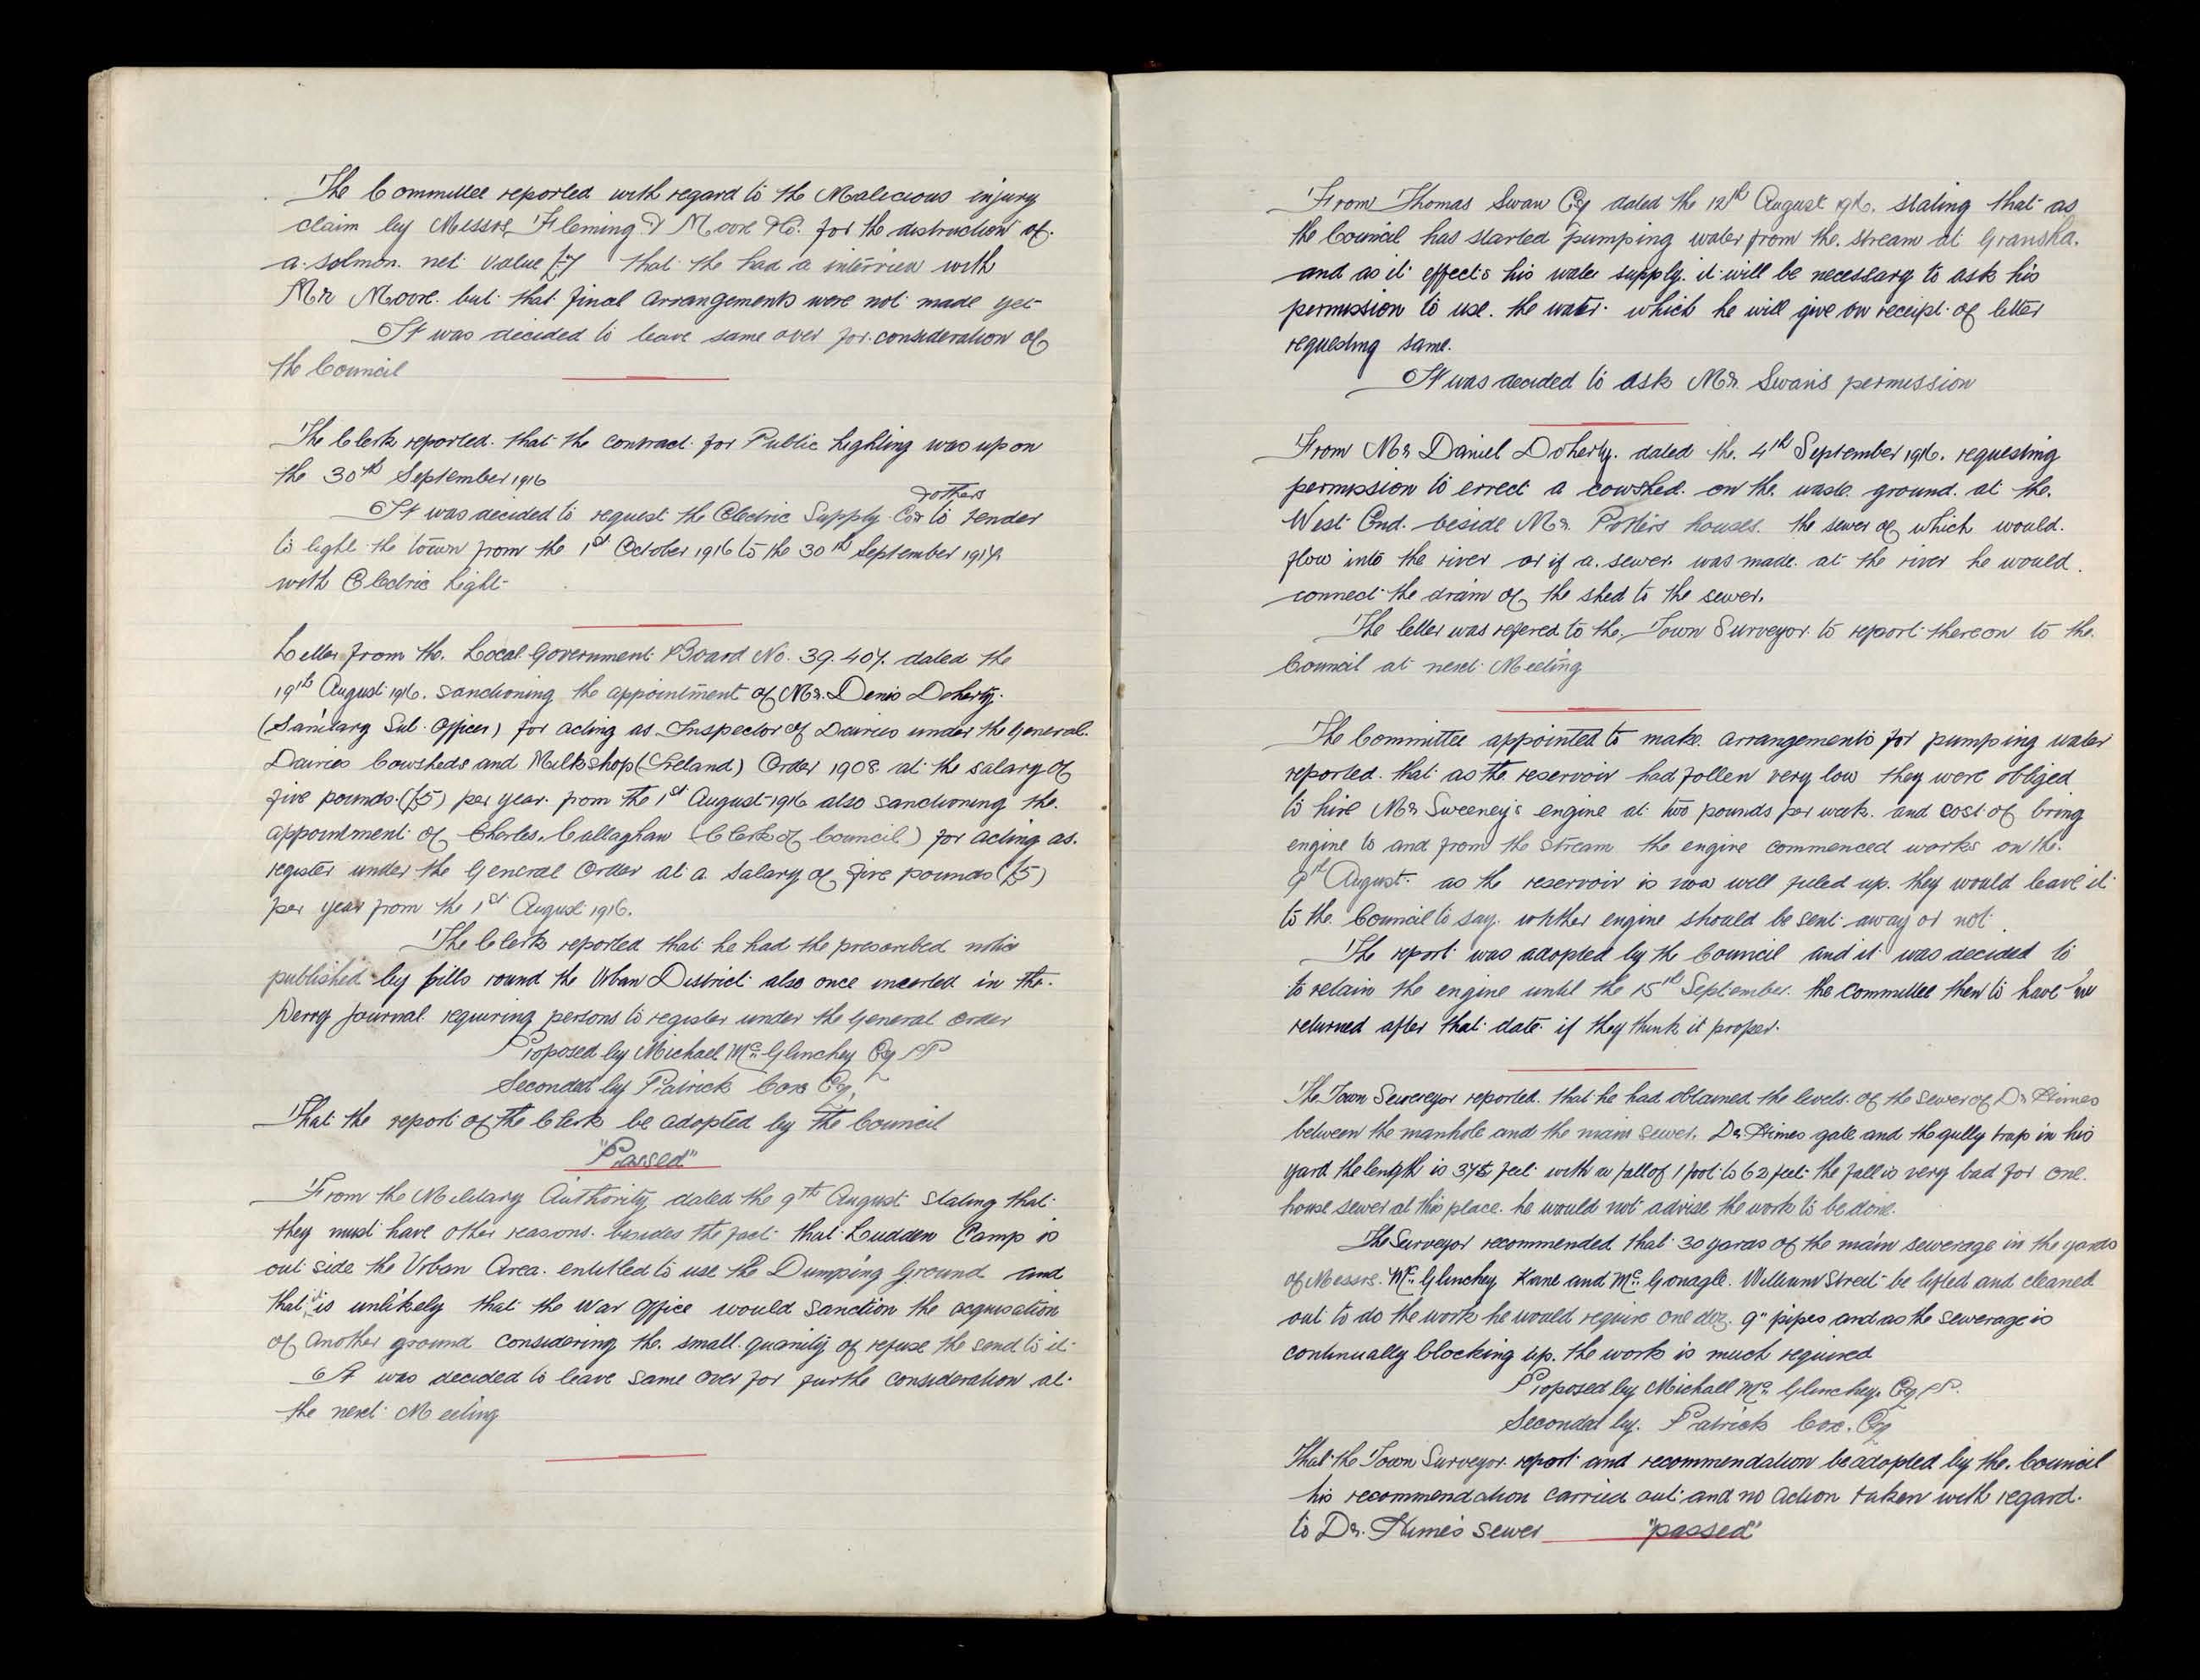 The Committee reported with regard to the Malicious injury
claim by Messrs Fleming & Moore & Co. for the distruction of
a solmon net value £7 that the had a interview with
Mr Moore but that final arrangements were not made yet
It was decided to leave same over for consideration of
the Council
The Clerk reported that the contract for Public Lighting was up on
the 30th September 1916
& others
It was decided to request the Electric Supply Coy to tender
to light the town from the 1st October 1916 to the 30th September 1917
with Electric Light
Letter from the Local Government Board No. 39.407 dated the
19th August 1916. sanctioning the appointment of Mr. Denis Doherty
(Sanitary Sub Officer) for acting as Inspector of Dairies under the General
Dairies Cowsheds and Milkshop (Ireland) Order 1908 at the salary of
five pounds (£5) per year from the 1st August 1916 also sanctioning the
appointment of Charles Callaghan (Clerk of Council) for acting as
register under the General Order at a salary of five pounds (£5)
per year from the 1st August 1916.
The Clerk reported that he had the prescribed notice
published by bills round the Urban District also once incerted in the
Derry Journal requiring persons to register under the General Order
Proposed by Michael Mc Glinchey Esq JP
Seconded by Patrick Cox Esq,
That the report of the Clerk be adopted by the Council
"Passed"
From the Military Authority dated the 9th August stating that
they must have other reasons besides the fact that Ludden Camp is
out side the Urban Area entitled to use the Dumping Ground and
that it is unlikely that the War Office would sanction the acquisation
of another ground considering the small quanity of refuse the send to it
It was decided to leave same over for furthe consideration at
the next Meeting
From Thomas Swan Esq dated the 12th August 1916. stating that as
the Council has started pumping water from the stream at Gransha.
and as it effects his water supply it will be necessary to ask his
permission to use the water which he will give on receipt of letter
requesting same.
It was decided to ask Mr. Swan's permission
From Mr Daniel Doherty dated the 4th September 1916. requesting
permission to errect a cowshed on the waste ground at the
West End beside Mr. Porter's houses the sewer of which would
flow into the river or if a sewer was made at the river he would
connect the drain of the shed to the sewer.
The letter was refered to the Town Surveyor to report thereon to the
Council at next Meeting
The Committee appointed to make arrangements for pumping water
reported that as the reservoir had follen very low they were obliged
to hire Mr Sweeney's engine at two pounds per week and cost of bring
engine to and from the stream the engine commenced works on the
9th August as the reservoir is now well filed up they would leave it
to the Council to say whther engine should be sent away or not
The report was adopted by the Council and it was decided to
to retain the engine until the 15th September the Committee then to have it
returned after that date if they think it proper.
The Town Surveyor reported that he had obtained the levels of the sewer of Dr Himes
between the manhole and the main sewer, Dr. Himes gate and the gully trap in his
yard the length is 374 feet with a fall of 1 foot to 62 feet the fall is very bad for one
house sewer at this place he would not advise the work to be done.
The Surveyor recommended that 30 yards of the main sewerage in the yards
of Messrs. Mc Glinchey Kane and Mc Gonagle William Street be lifted and cleaned
out to do the work he would require one doz. 9" pipes and as the sewerage is
continually blocking up the work is much required
Proposed by Michall Mc Glinchey Esq JP.
Seconded by Patrick Cox. Esq
That the Town Surveyor report and recommendation be adopted by the Council
his recommendation carried out and no action taken with regard
to Dr. Himes sewer "passed"